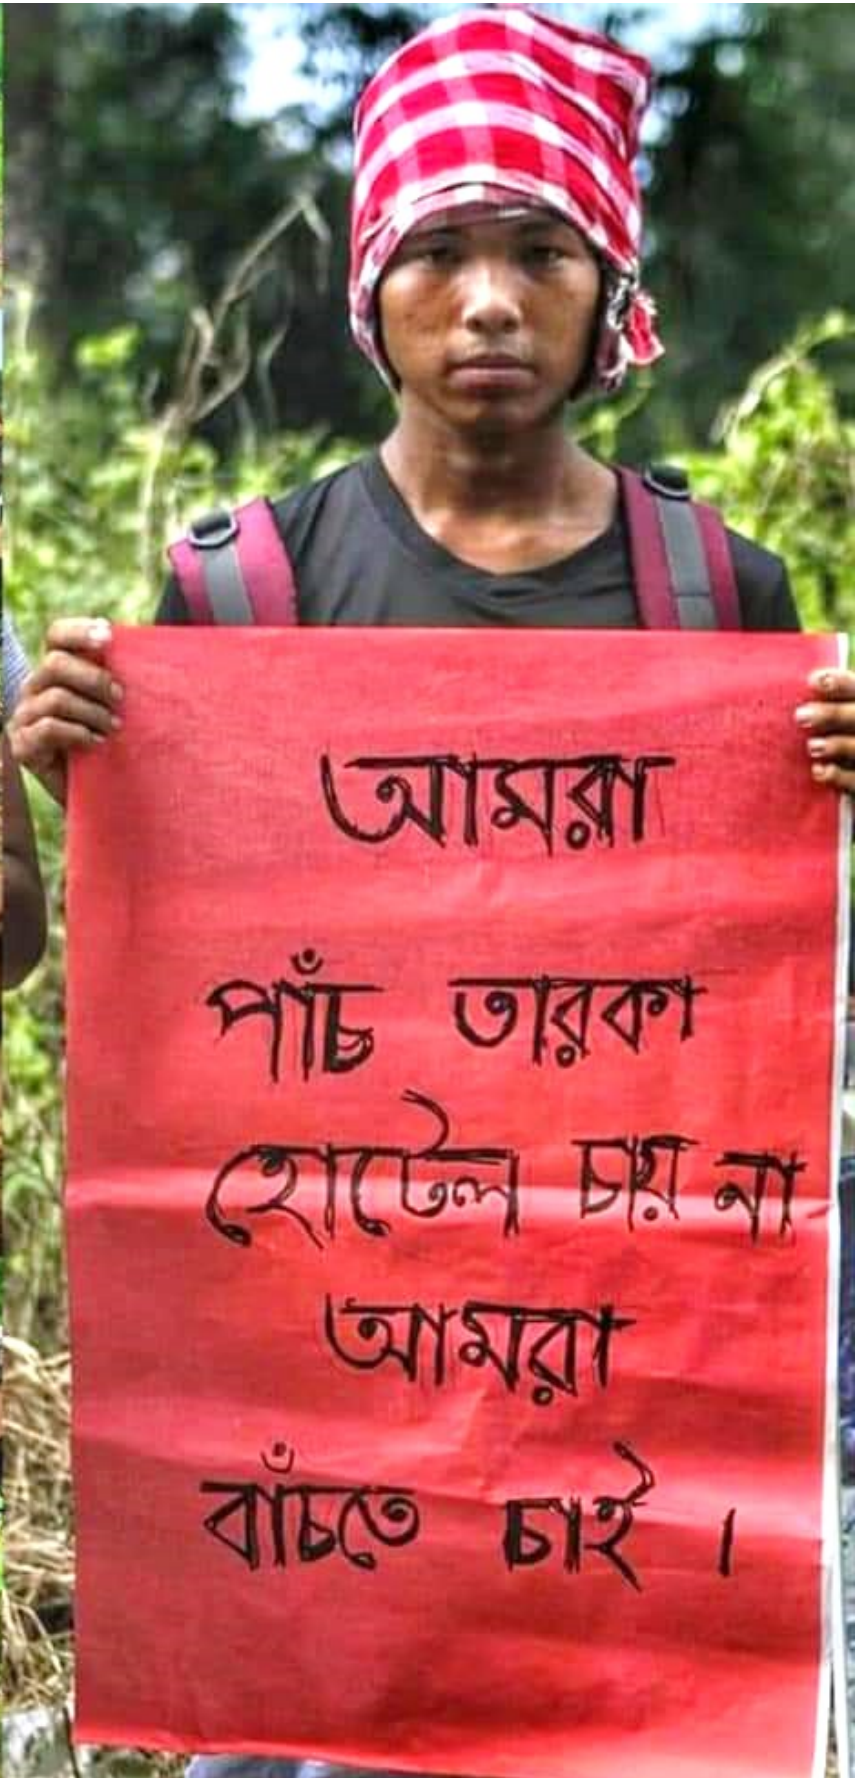 আমরা
পাঁচ তারকা
হোটেল চায় না
আমরা
বাঁচতে চাই ।